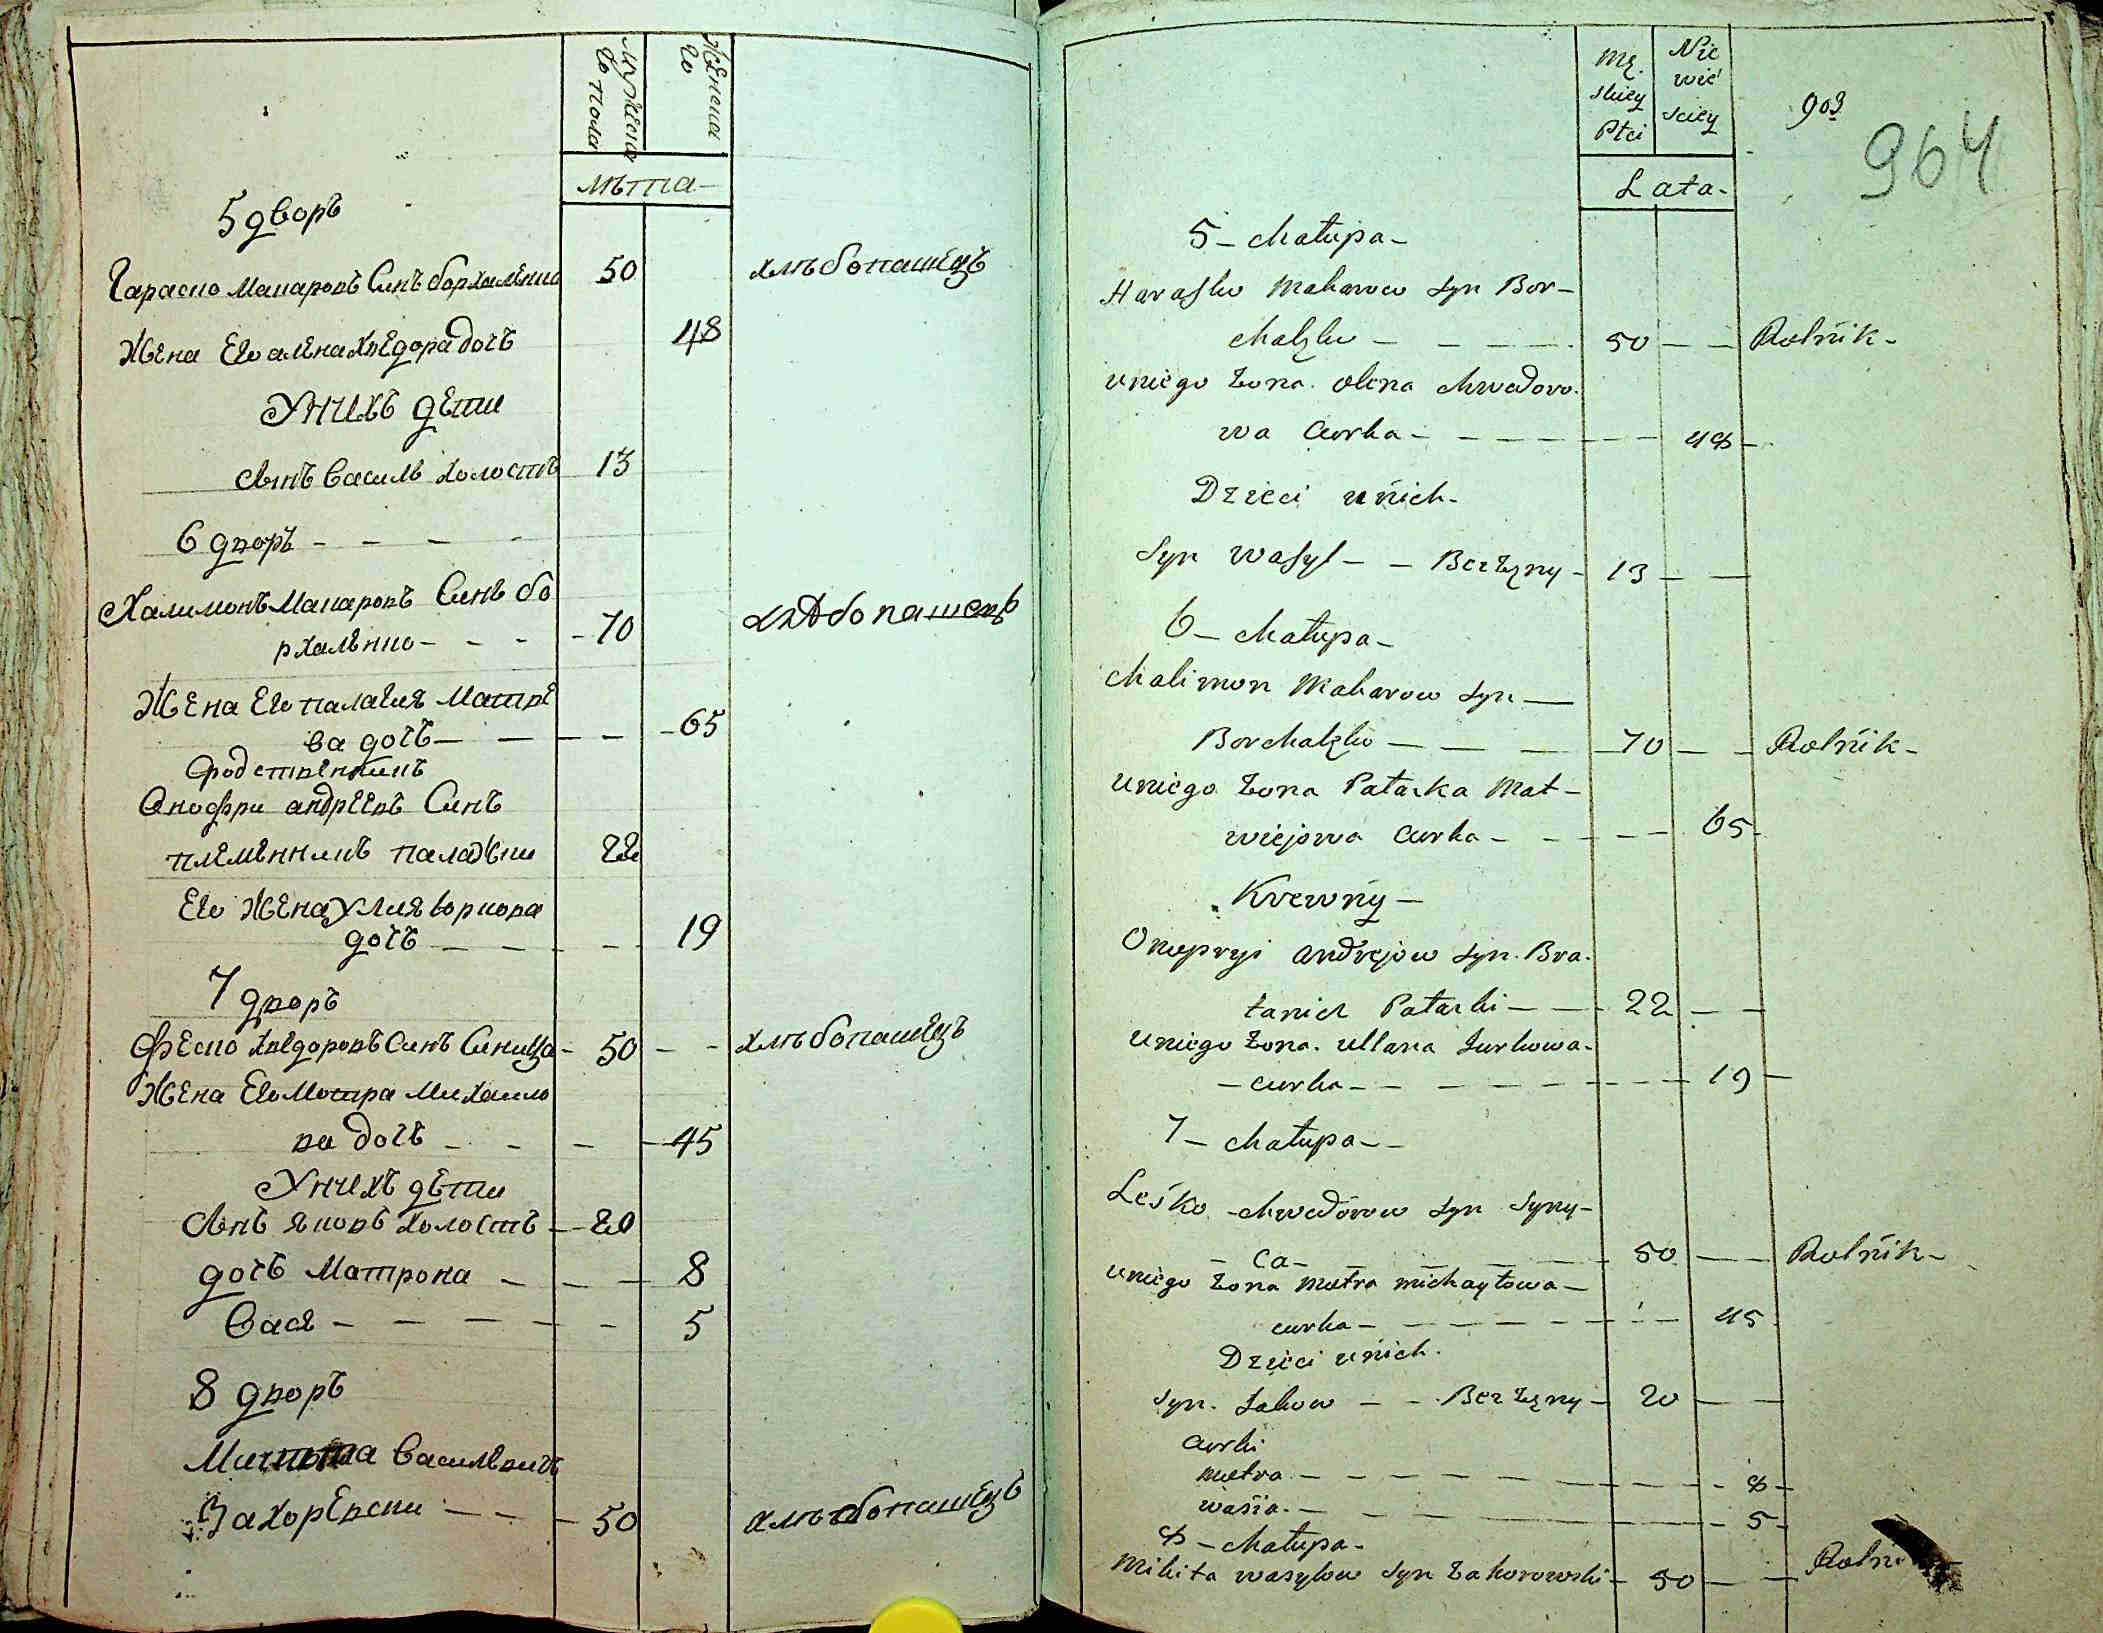 Мужеска
го пола
Женска
го
лѣта
5 дворъ
Гараско Макаровъ Синъ борхаленко 50 хлѣбопашецъ
Жена Его алена Хведора дочъ 48
У нихъ дети
Синъ Василь холостъ 13
6 дворъ - - - -
Халимонъ Макаровъ Синъ бо
рхаленко - - - 70 хлѣбопашецъ
Жена Его палагия Матве
ва дочъ - - - 65
Родственникъ
Онофри андреевъ Синъ
племенникъ палажки 22
Его Жена Улия Юркова
дочъ - - - 19
7 дворъ
Феско Хведоровъ Синъ Синица - 50 - - хлѣбопашецъ
Жена Его Мотра Михаило
ва дочъ - - - 45
У нихъ дѣти
Синъ Яковъ холостъ - 20
дочъ Матрона - - - 8
Вася - - - - - 5
8 дворъ
Микита Васильевичъ
Захоревски - - - 50 хлѣбопашецъ
Mę Nie
skiey wie
Płci sciey
903
964
Lata -
5 - chałupa -
Harasko Makarow syn Bor -
chalęko - - - - 50 - - Rolnik -
u niego żona olena chwedoro.
wa curka - - - - - 48 -
Dzieci u nich -
Syn wasyl - - Bezżęny - 13 - -
6 - chałupa -
chalimon Makarow syn -
Borchalęko - - - 70 - - Rolnik -
u niego żona Pałaxka Mat -
wiejowa curka - - - - 65 -
Krewny -
Onopryi andrejow syn. Bra.
tanich Pałaxki - - 22 - -
u niego żona. ullana Jurkowa -
- curka - - - - - - - 19 -
7 - chałupa - -
Leśko chwedorow syn Syny -
- ca - - - - 50 - - Rolnik -
u niego żona motra michayłowa -
curka - - - - - - - 45 -
Dzieci u nich.
syn. Jakow - - Bezżęny - 20 - -
curki
motra - - - - - - - 8 -
wasia - - - - - - 5 -
8 - chałupa -
Mikita wasylow syn Zakorowski - 50 - - Rolni